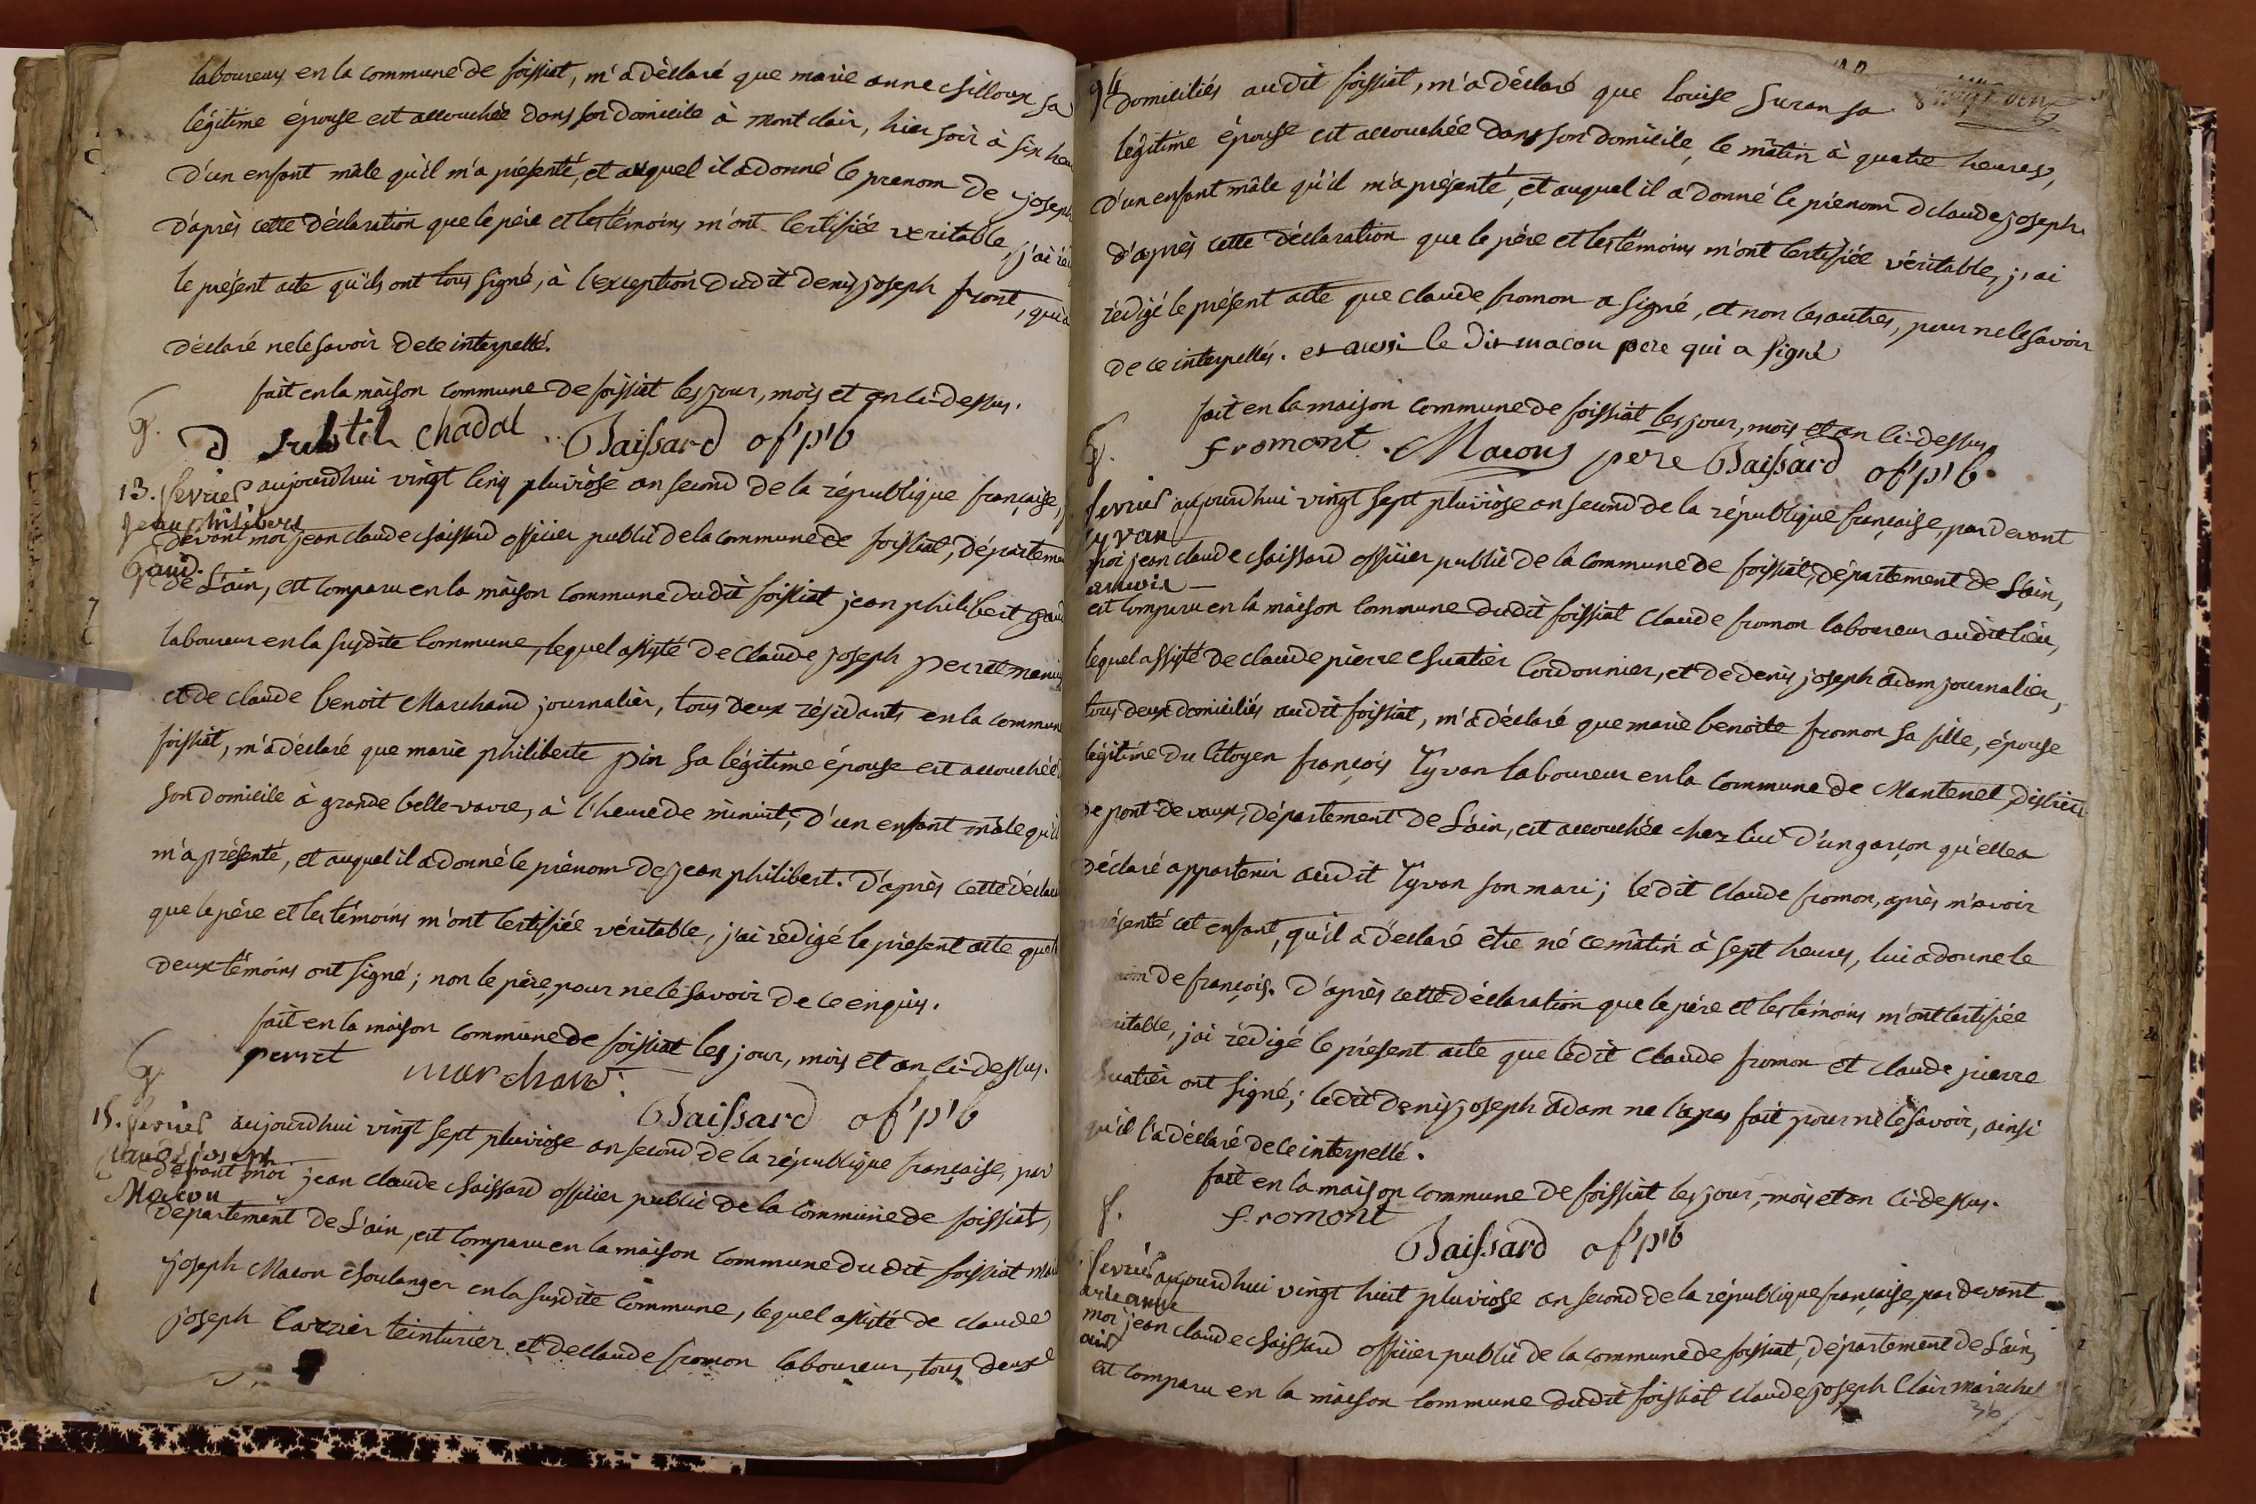 laboureur en la commune de foissiat, m'a déclaré que marie anne billoux sa
légitime épouse est accouchée dans son domicile à montclair, hier soir à six heu
d'un enfant mâle qu'il m'a présenté, et auquel il a donné le prenom de joseph
d'après cette déclaration que le père et les témoins m'ont certifiée veritable, j'ai ré
le présent acte qu'ils ont tous signé, à l'exception dudit denis joseph front, qui a
déclaré ne le savoir de ce interpellé.
fait en la maison commune de foissiat les jour, mois et an ci-dessus.
D subtil chadal Baissard of' p'b
13. fevrier aujourdhui vingt cinq pluviôse an second de la république française,
jean philibert
devant moi jean claude baissard officier public de la commune de foissiat, départeme
Gaud.
de L'ain, est comparu en la maison commune dudit foissiat jean philibert gaud
laboureur en la susdite commune, lequel assisté de claude joseph perret manu
et de claude benoit Marchand journalier, tous deux résidants en la commune
foissiat, m'a déclaré que marie philiberte pin sa légitime épouse est accouchée
son domicile à grande belle-vavre, à l'heure de minuit, d'un enfant mâle qu'il
m'a présenté, et auquel il a donné le prénom de jean philibert. D'après cette déclara
que le père et les témoins m'ont certifiée véritable, j'ai rédigé le présent acte que
deux témoins ont signé; non le père, pour ne le savoir de ce enquis.
fait en la maison commune de foissiat les jour, mois et an ci-dessus.
perret marchand
Baissard of' p'b
15. fevrier aujourdhui vingt sept pluviose an second de la république française, par
claude joseph
devant moi jean claude baissard officier public de la commune de foissiat,
Macon
département de L'ain, est comparu en la maison commune dudit foissiat
joseph Macon boulanger en la susdite commune, lequel assisté de claude
joseph Carrier teinturier et de claude fromon laboureur, tous deux
domiciliés audit foissiat, m'a déclaré que louise Suran sa
légitime épouse est accouchée dans son domicile, ce mâtin à quatre heures,
d'un enfant mâle qu'il m'a présenté, et auquel il a donné le prénom d claude joseph.
d'après cette déclaration que le père et les témoins m'ont certifiée véritable, j'ai
rédigé le présent acte que claude fromon a signé, et non les autres, pour ne le savoir
de ce interpellés. et aussi le dit macon pere qui a signé
fait en la maison commune de foissiat les jour, mois et an ci-dessus
fromont. Macons pere Baissard of' p'b.
fevrier aujourdhui vingt sept pluviôse an second de la république française, par devant
tyvan
moi jean claude baissard officier public de la commune de foissiat, département de L'ain,
est comparu en la maison commune dudit foissiat claude fromon laboureur audit lieu,
lequel assisté de claude pierre buatier cordonnier, et de denis joseph adam journalier,
tous deux domiciliés audit foissiat, m'a déclaré que marie benoite fromon sa fille, épouse
légitime du citoyen françois Tyvan laboureur en la commune de Mantenet, district
de pont-de-vaux, département de L'ain, est accouchée chez lui d'un garçon qu'elle a
déclaré appartenir audit Tyvan son mari; le dit claude fromon, après m'avoir
présenté cet enfant, qu'il a déclaré être né ce mâtin à sept heures, lui a donné le
nom de françois. D'après cette déclaration que le père et les témoins m'ont certifiée
veritable, j'ai rédigé le présent acte que ledit claude fromon et claude pierre
buatier ont signé; le dit denis joseph adam ne l'a pas fait pour ne le savoir, ainsi
qu'il l'a déclaré de ce interpellé.
fait en la maison commune de foissiat les jour, mois et an ci-dessus.
fromont
Baissard of' p'b
fevrier aujourdhui vingt huit pluviose an second de la république française, par devant
arie anne
moi jean claude baissard officier public de la commune de foissiat, département de L'ain,
est comparu en la maison commune dudit foissiat claude joseph Clair maréchal
36